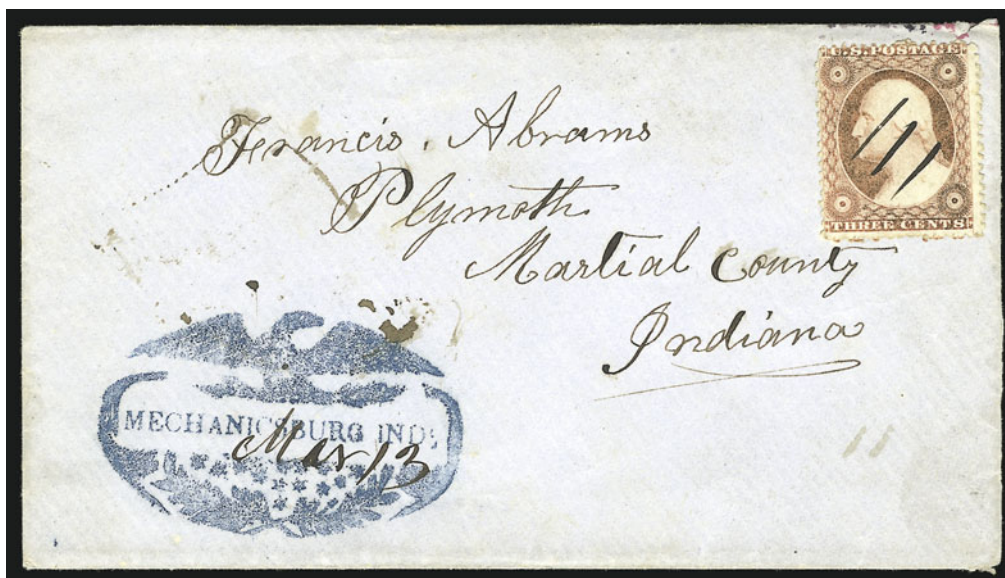 U.S. POSTAGE
THREE CENTS
Francis. Abrams
Plymoth
Martial County
Indiana
MECHANICSBURG IND:
Mar 13
11